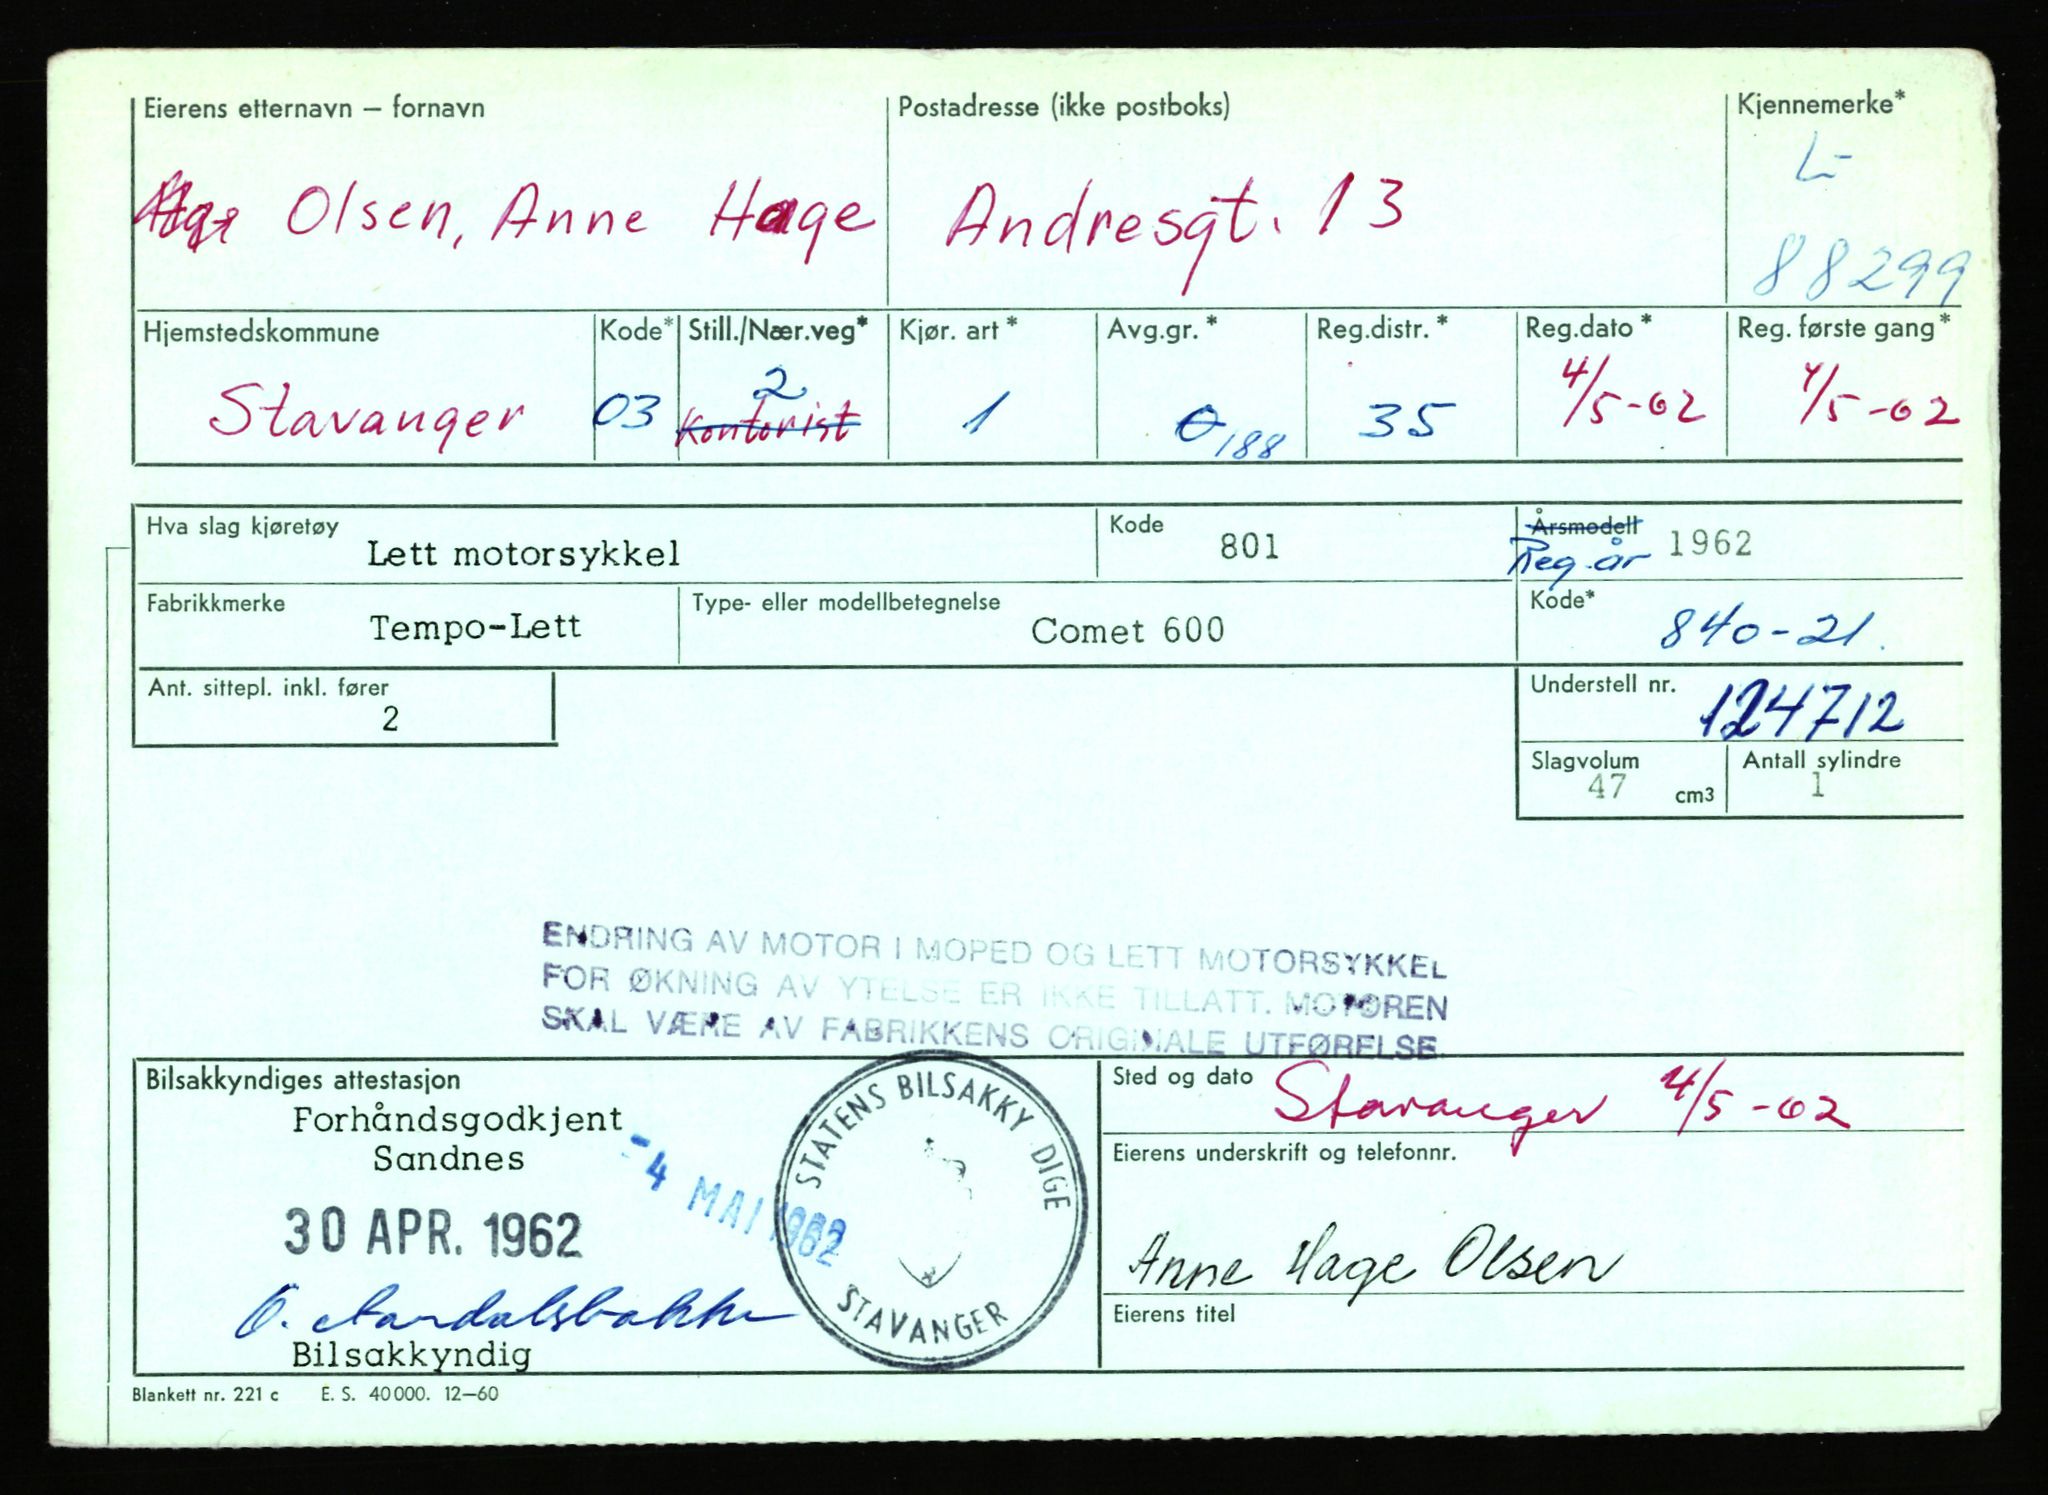 Eierens etternavn – fornavn
Postadresse (ikke postboks)
Kjennemerke*
Olsen, Anne Hage
Andresgt. 13
L-
88299
Hjemstedskommune
Kode*
Still./Nær.veg*
Kjør. art*
Avg.gr.*
Reg.distr.*
Reg.dato*
Reg. første gang*
Stavanger
03
2
Kontorist
1
0
188
35
4/5-62
4/5-62
Hva slag kjøretøy
Lett motorsykkel
Kode
801
Årsmodell
Reg.år
1962
Fabrikkmerke
Tempo-Lett
Type- eller modellbetegnelse
Comet 600
Kode*
840-21.
Ant. sittepl. inkl. fører
2
Understell nr.
124712
Slagvolum
47 cm3
Antall sylindre
1
ENDRING AV MOTOR I MOPED OG LETT MOTORSYKKEL
FOR ØKNING AV YTELSE ER IKKE TILLATT. MOTOREN
SKAL VÆRE AV FABRIKKENS ORIGINALE UTFØRELSE.
Bilsakkyndiges attestasjon
Forhåndsgodkjent
Sandnes
-4 MAI 1962
30 APR. 1962
Bilsakkyndig
STATENS BILSAKKYNDIGE
STAVANGER
Sted og dato
Stavanger 4/5-62
Eierens underskrift og telefonnr.
Anne Hage Olsen
Eierens titel
Blankett nr. 221 c E. S. 40000. 12–60